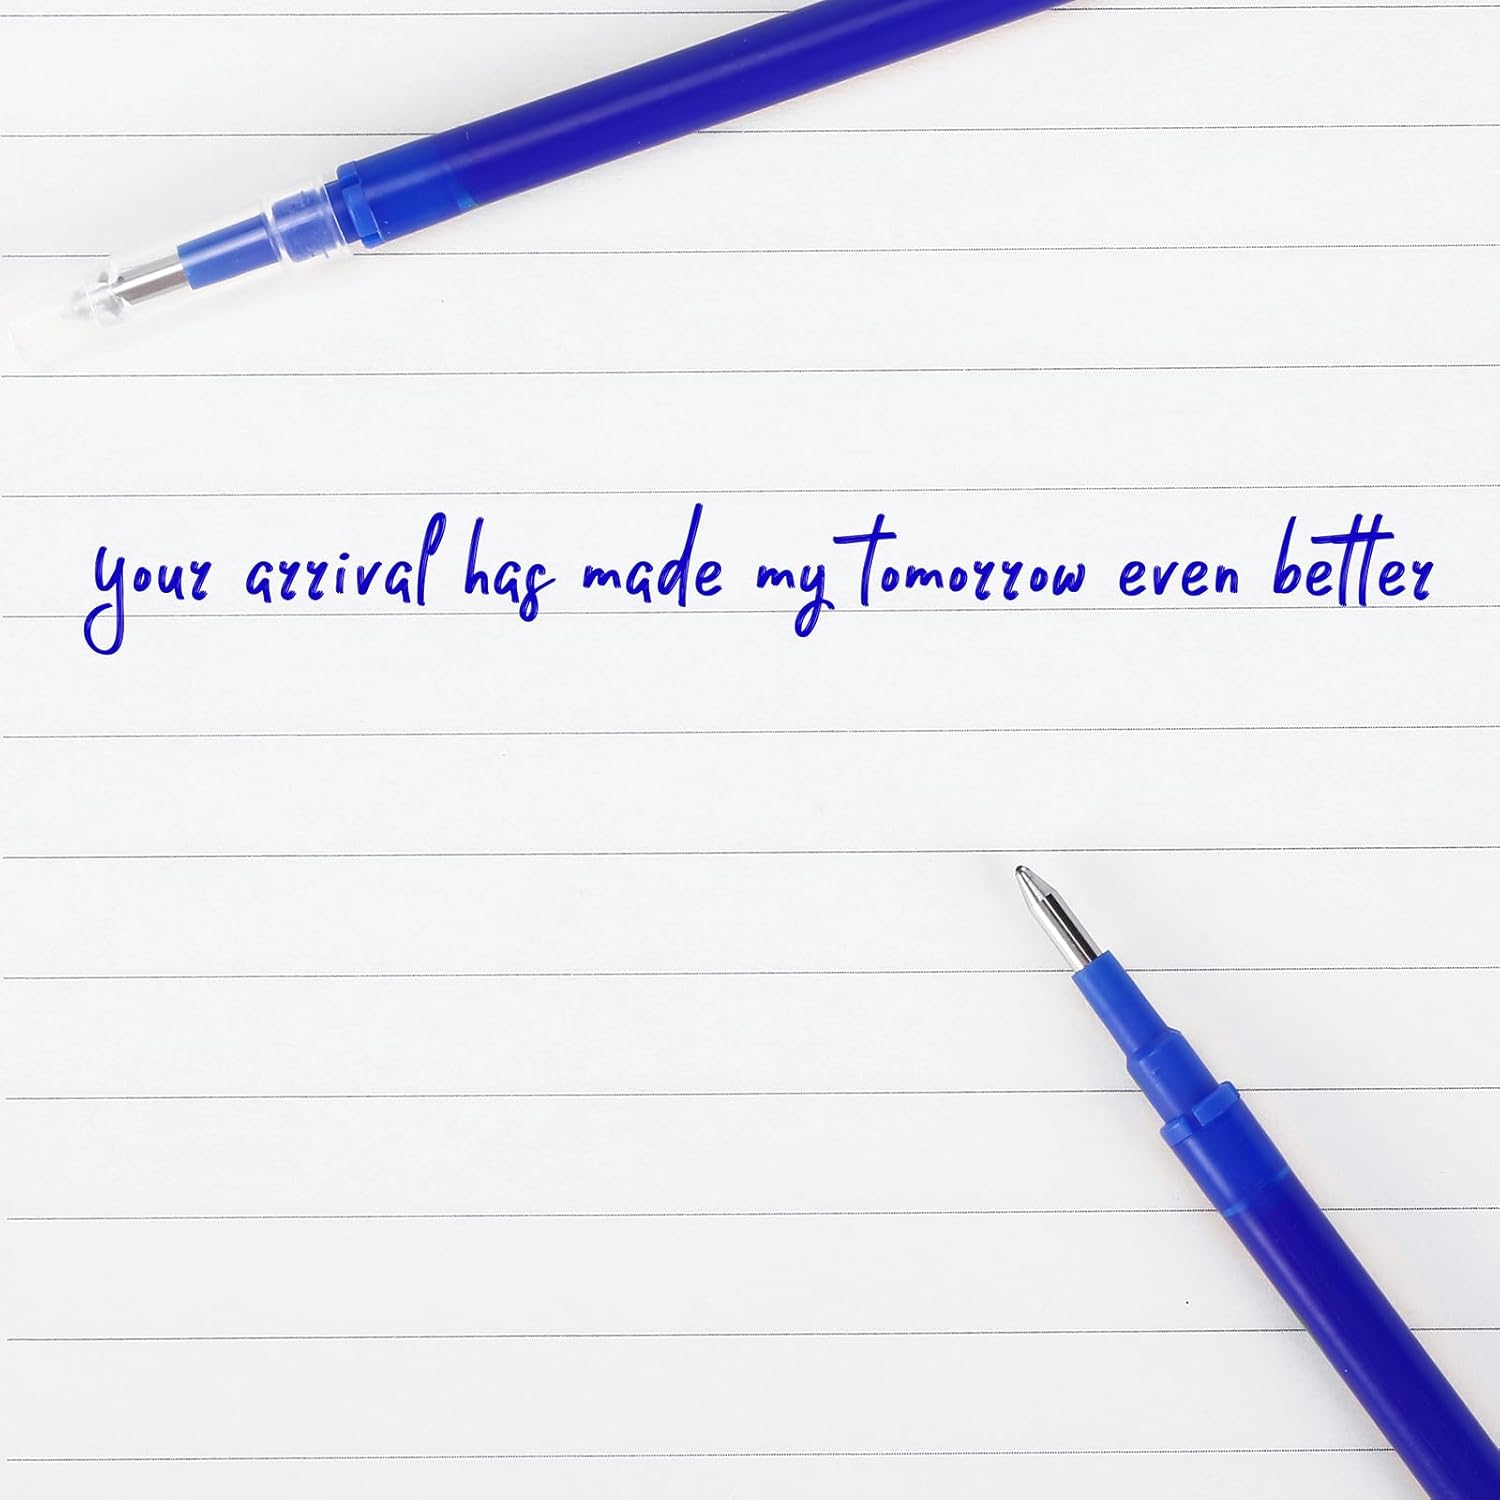 your arrival has made my tomorrow even better